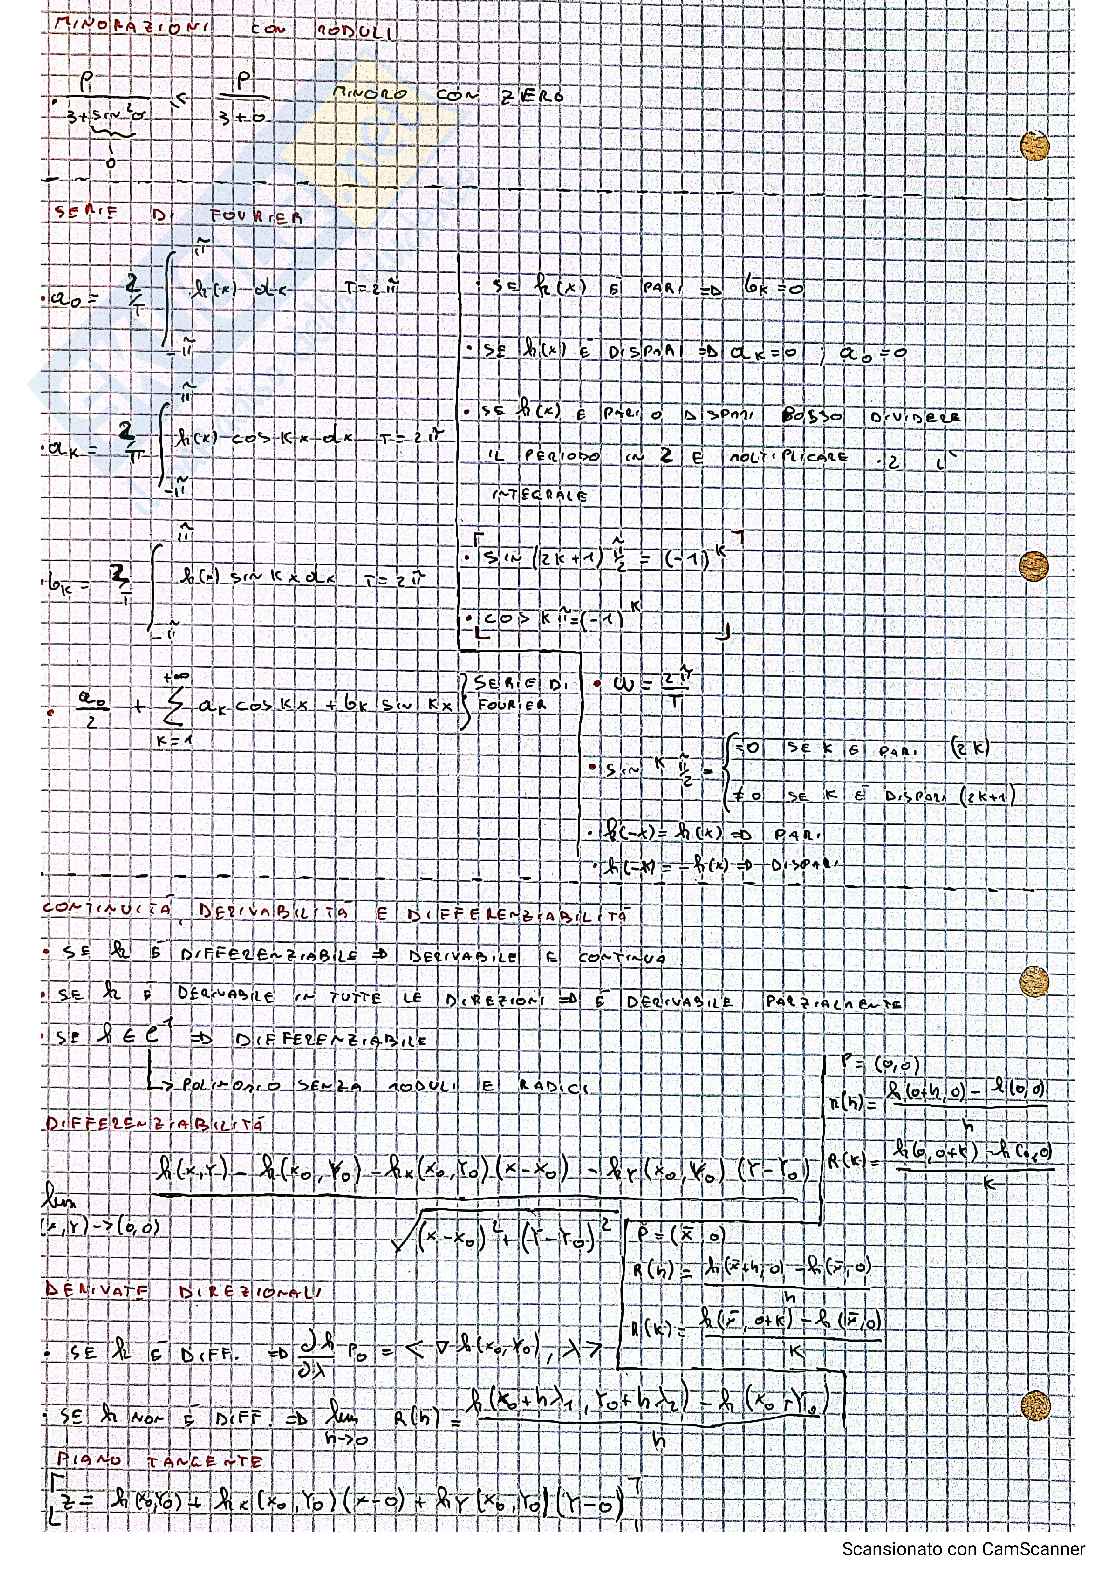 MINORAZIONI CON MODULI
• ρ / (3+sin²θ) ≤ ρ / (3+0) MINORO CON ZERO
0
SERIE DI FOURIER
• a₀ = 2/T ∫_{-π}^{π} f(x) dx T=2π
• SE f(x) È PARI ⇒ bₖ=0
• SE f(x) È DISPARI ⇒ aₖ=0 ; a₀=0
• aₖ = 2/T ∫_{-π}^{π} f(x) cos kx dx T=2π
• SE f(x) È PARI O DISPARI POSSO DIVIDERE
IL PERIODO IN 2 E MOLTIPLICARE ·2 L'
INTEGRALE
• bₖ = 2/T ∫_{-π}^{π} f(x) sin kx dx T=2π
• sin (2k+1) π/2 = (-1)^k
• cos kπ = (-1)^k
• a₀/2 + Σ_{k=1}^{+∞} aₖ cos kx + bₖ sin kx } SERIE DI FOURIER
• ω = 2π/T
• sin k π/2 = { =0 SE K È PARI (2k)
≠0 SE K È DISPARI (2k+1)
• f(-x) = f(x) ⇒ PARI
• f(-x) = -f(x) ⇒ DISPARI
CONTINUITÀ, DERIVABILITÀ E DIFFERENZIABILITÀ
• SE f È DIFFERENZIABILE ⇒ DERIVABILE E CONTINUA
• SE f È DERIVABILE IN TUTTE LE DIREZIONI ⇒ È DERIVABILE PARZIALMENTE
• SE f ∈ C¹ ⇒ DIFFERENZIABILE
↳ POLINOMIO SENZA MODULI E RADICI
P = (0,0)
R(h) = (f(0+h,0) - f(0,0)) / h
R(k) = (f(0,0+k) - f(0,0)) / k
DIFFERENZIABILITÀ
lim (x,y)→(0,0) (f(x,y) - f(x₀,y₀) - fx(x₀,y₀)(x-x₀) - fy(x₀,y₀)(y-y₀)) / √((x-x₀)²+(y-y₀)²)
P = (x̄,0)
R(h) = (f(x̄+h,0) - f(x̄,0)) / h
R(k) = (f(x̄,0+k) - f(x̄,0)) / k
DERIVATE DIREZIONALI
• SE f È DIFF. ⇒ ∂f/∂λ P₀ = < ∇f(x₀,y₀), λ >
• SE f NON È DIFF. ⇒ lim h→0 R(h) = (f(x₀+hλ₁, y₀+hλ₂) - f(x₀,y₀)) / h
PIANO TANGENTE
z = f(x₀,y₀) + fx(x₀,y₀)(x-0) + fy(x₀,y₀)(y-0)
Scansionato con CamScanner